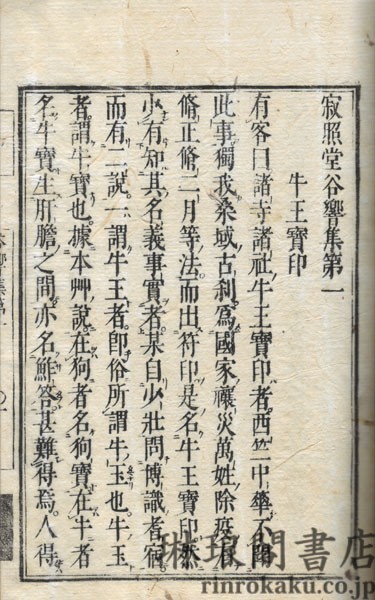 寂照堂谷響集第一
牛王寶印
有客曰諸寺諸社牛王寶印者西竺中華不聞
此事獨我桑域古刹爲國家禳災萬姓除疫
脩正脩二月等法而出符印是名牛王寶印然
少有知其名義事實者某自少壯問博識者宿
而有二說一謂牛王者即俗所謂牛玉也牛玉
者謂牛寶也據本艸說在狗者名狗寶在牛者
名牛寶生肝膽之間亦名鮓答甚難得焉人得
琳琅閣書店
rinrokaku.co.jp